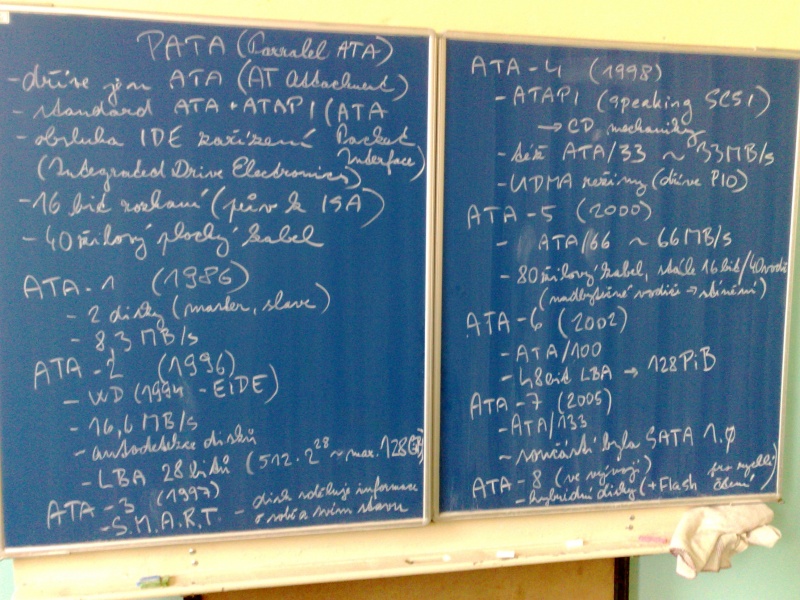 PATA (Parralel ATA)
- dříve jen ATA (AT Attachment)
- standard ATA + ATAPI (ATA Packet Interface)
- obsluha IDE zařízení
(Integrated Drive Electronics)
- 16 bit rozhraní (pův. k ISA)
- 40 žilový plochý kabel
ATA-1 (1986)
- 2 disky (master, slave)
- 8,3 MB/s
ATA-2 (1996)
- WD (1994 - EIDE)
- 16,6 MB/s
- autodetekce disků
- LBA 28 bitů (512 · 2^28 ~ max. 128 GB)
ATA-3 (1997)
- S.M.A.R.T. - disk sděluje informace
o sobě a svém stavu
ATA-4 (1998)
- ATAPI (speaking SCSI)
→ CD mechaniky
- též ATA/33 ~ 33MB/s
- UDMA režimy (dříve PIO)
ATA-5 (2000)
- ATA/66 ~ 66 MB/s
- 80 žilový kabel, stále 16 bit/40 vodičů
(nadbytečné vodiče → stínění)
ATA-6 (2002)
- ATA/100
- 48 bit LBA → 128 PiB
ATA-7 (2005)
- ATA/133
- součástí byla SATA 1.0
ATA-8 (ve vývoji)
- hybridní disky (+ Flash pro rychlé čtení)